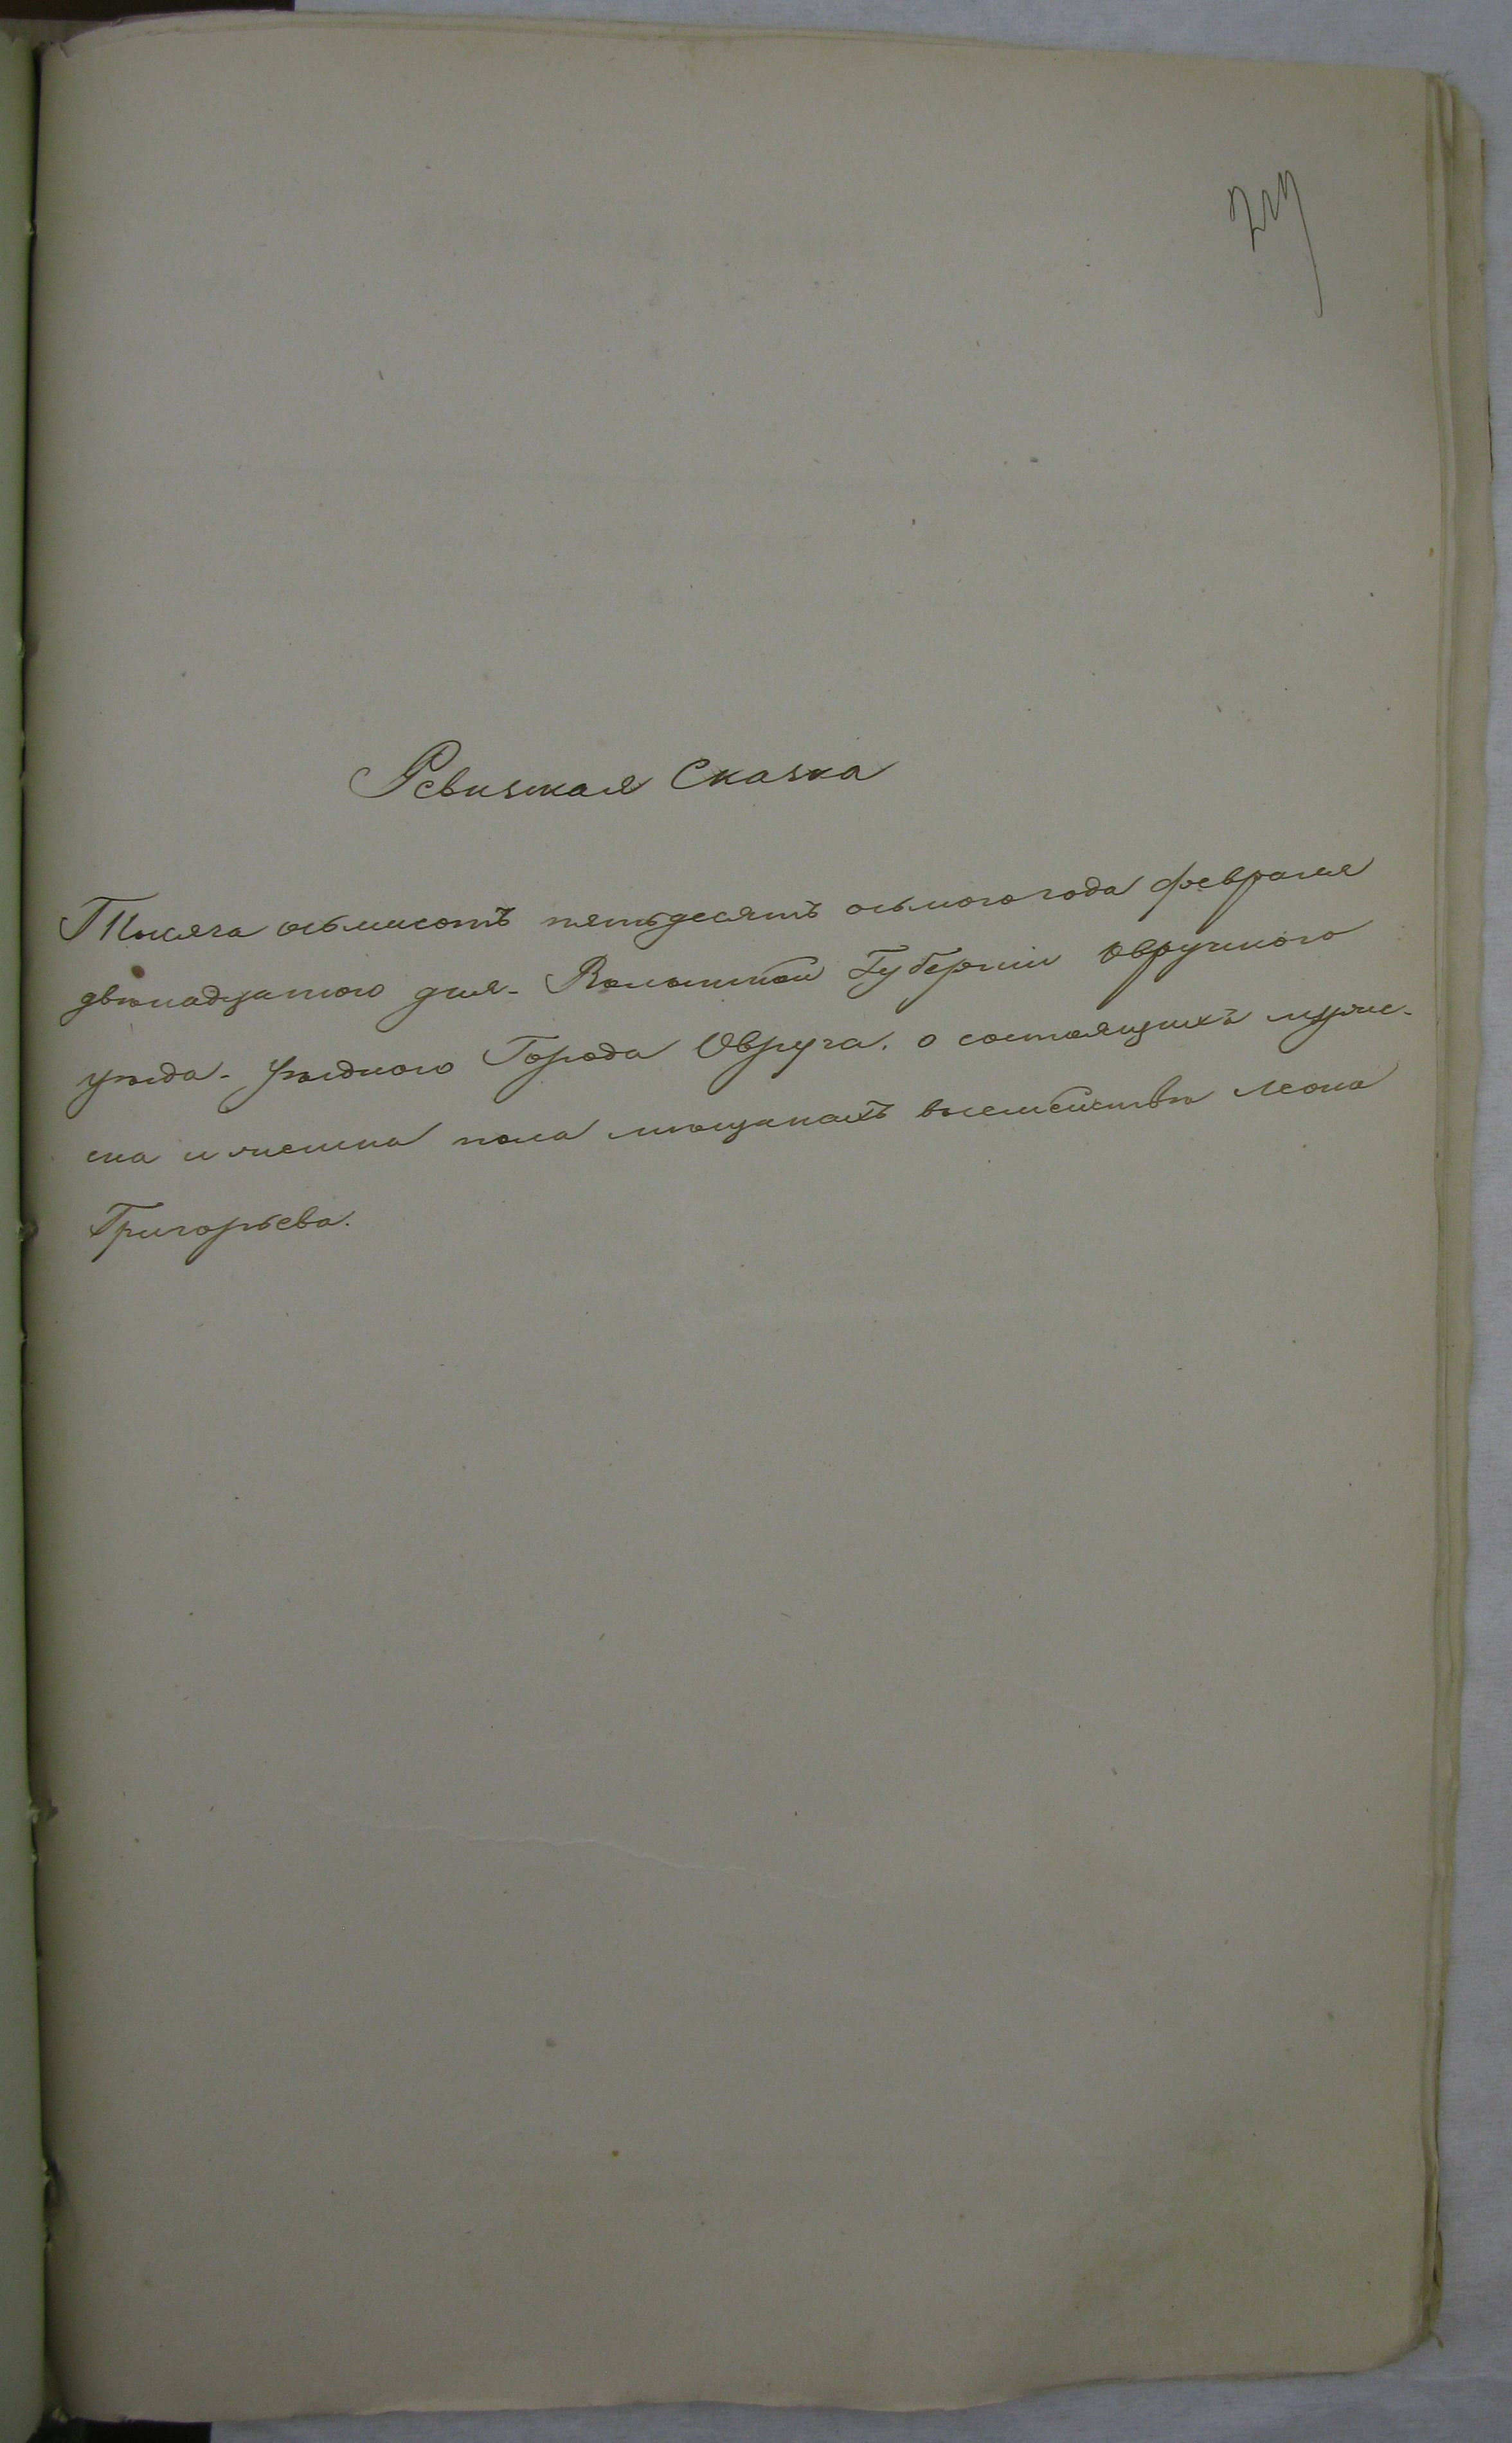 Ревизкая Сказка
Тысяча осьмисотъ пятьдесятъ осьмого года февраля
двѣнадцатого дня. Волынской Губерніи Овручского
уѣзда. уѣздного Города Овруча. о состоящихъ муже-
ска и женска пола мѣщанахъ
Григорьева.